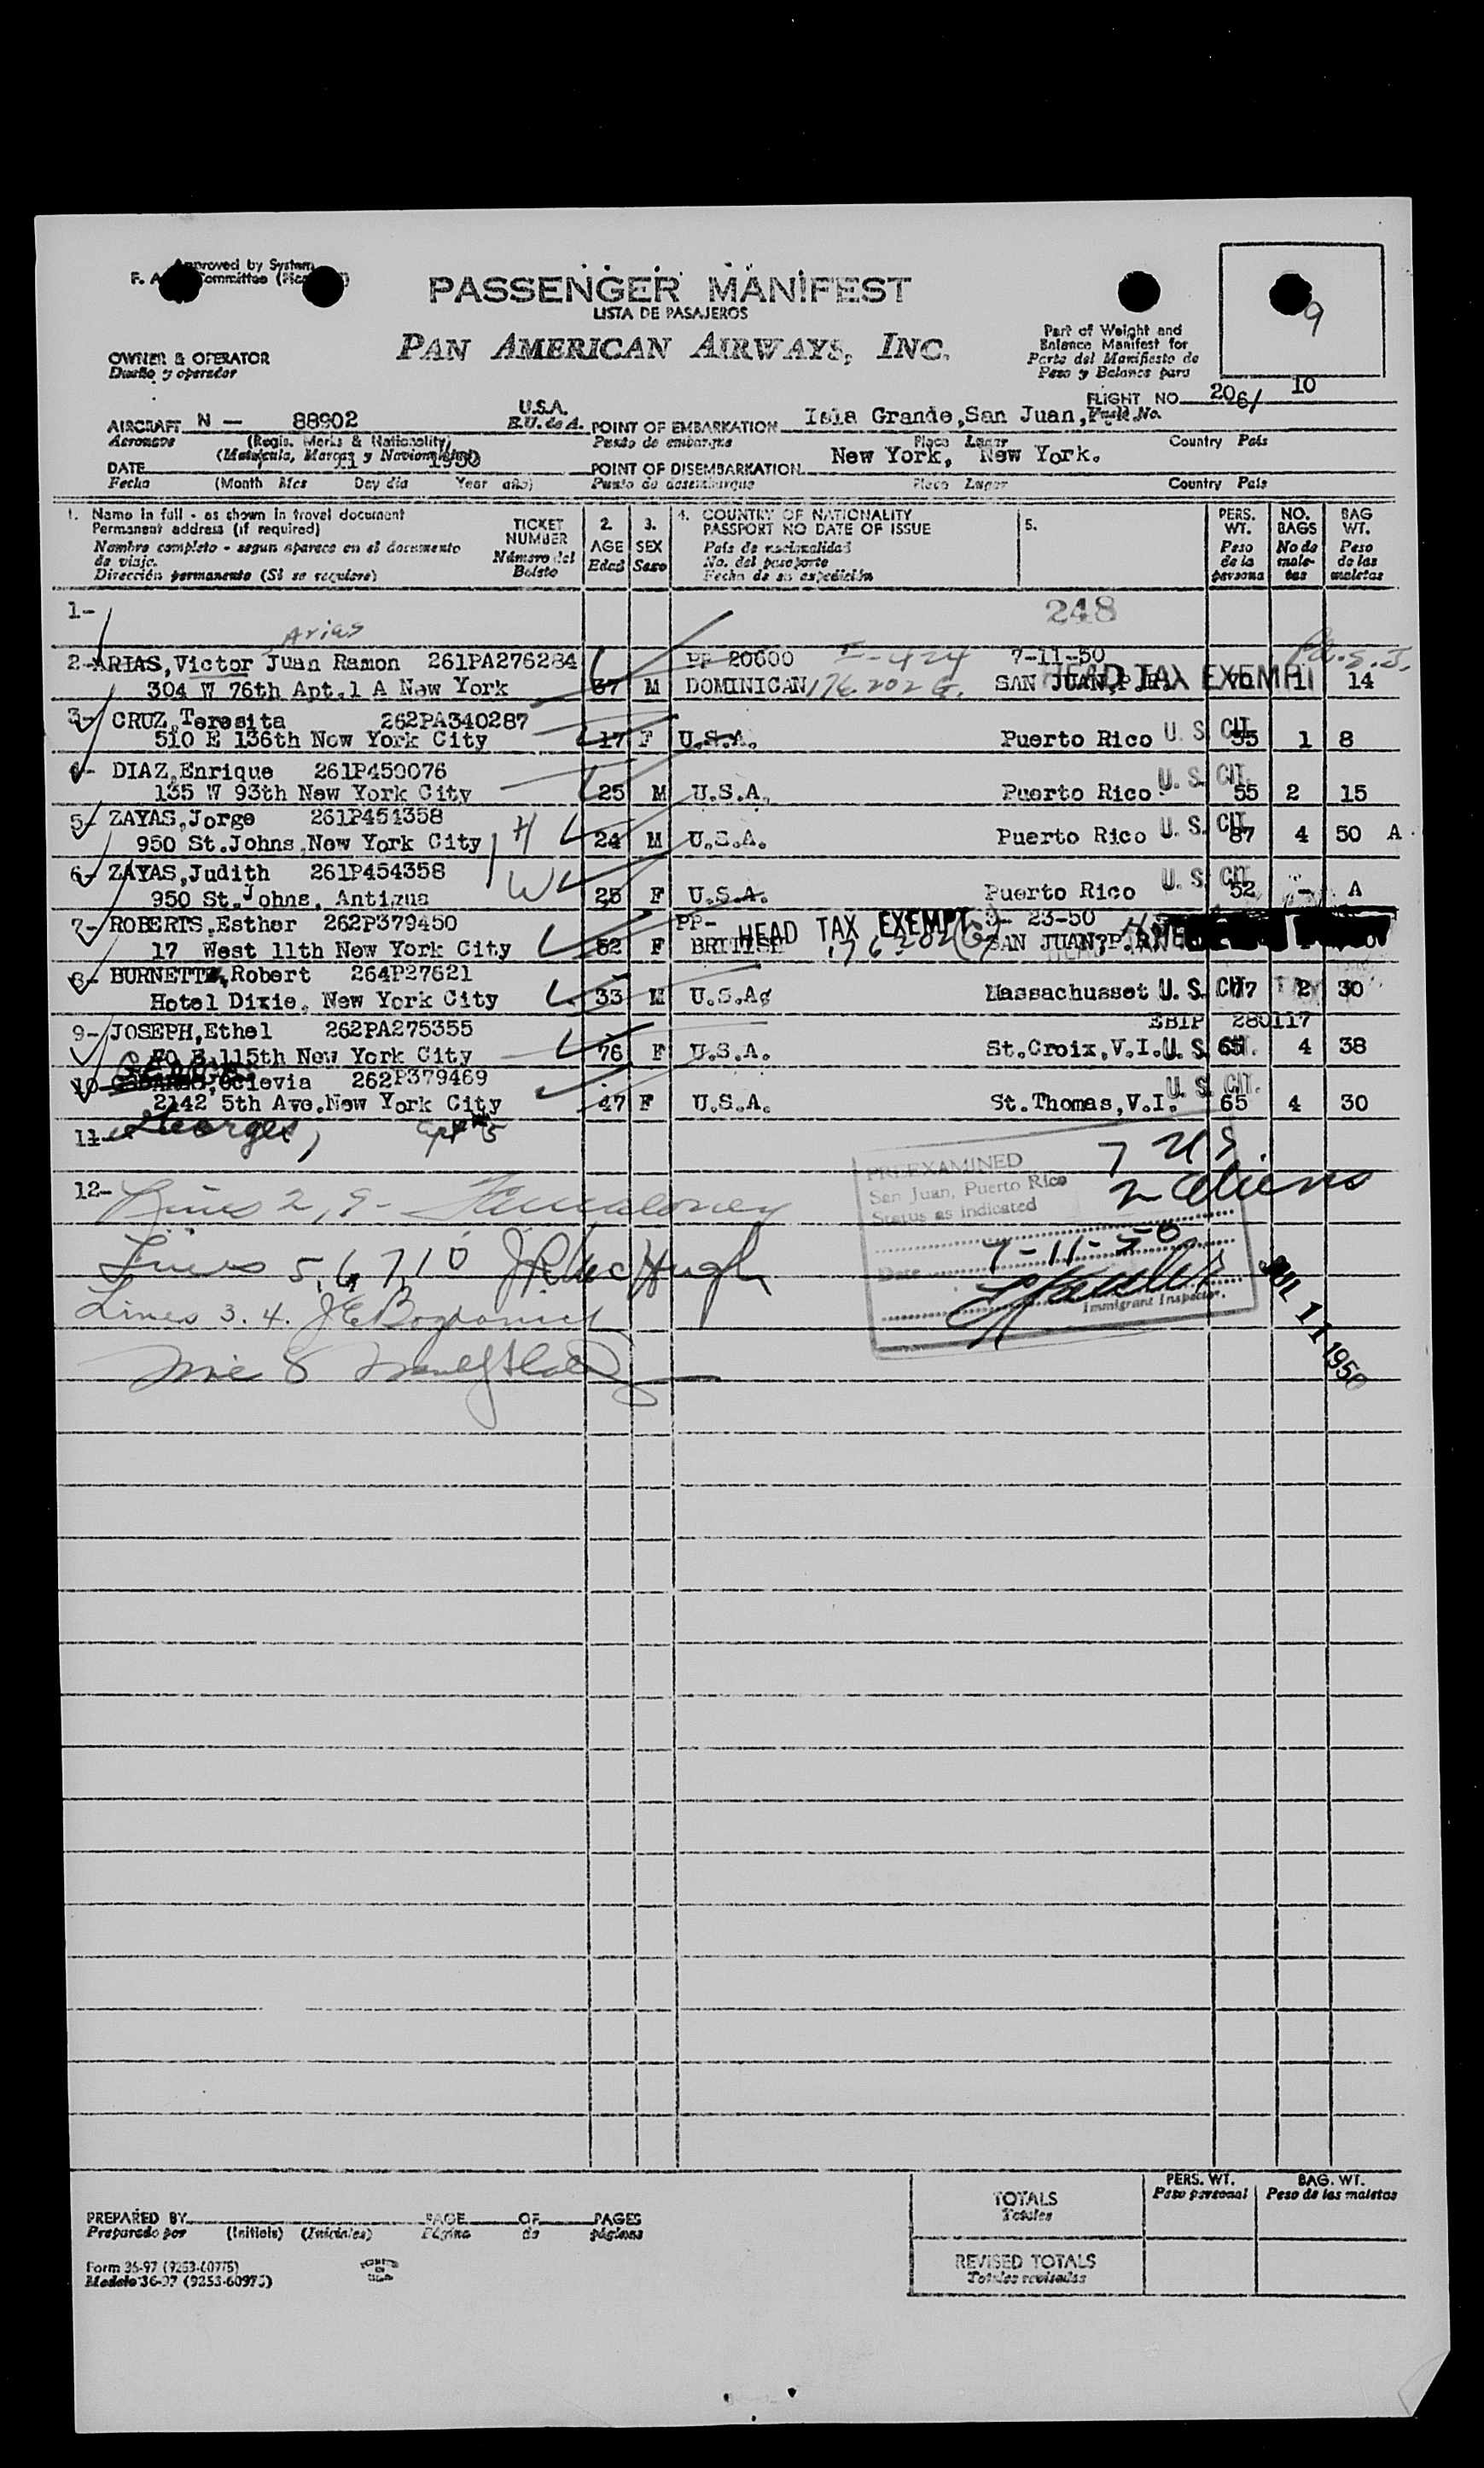 Approved by System
F. A. Committee
PASSENGER MANIFEST
LISTA DE PASAJEROS
PAN AMERICAN AIRWAYS, INC.
9
Part of Weight and
Balance Manifest for
Parte del Manifiesto de
Peso y Balance para
OWNER & OPERATOR
Dueño y operador
FLIGHT NO. 206/ 10
Vuelo No.
AIRCRAFT N — 88902 U.S.A. POINT OF EMBARKATION Isla Grande, San Juan,
Aeronave (Regis. Marks & Nationality) E.U. de A. Punto de embarque Place Lugar Country País
(Matrícula, Marcas y Nacionalidad)
DATE 11 1950 POINT OF DISEMBARKATION New York, New York.
Fecha (Month Mes Day día Year año) Punto de desembarque Place Lugar Country País
1. Name in full - as shown in travel document
Permanent address (if required)
Nombre completo - segun aparece en el documento
de viaje.
Dirección permanente (Si se requiere)
TICKET
NUMBER
Número del
Boleto
2.
AGE
Edad
3.
SEX
Sexo
4. COUNTRY OF NATIONALITY
PASSPORT NO DATE OF ISSUE
País de nacionalidad
No. del pasaporte
Fecha de su expedición
5.
PERS.
WT.
Peso
de la
persona
NO.
BAGS
No de
male-
tas
BAG
WT.
Peso
de las
maletas
1- 248
Arias
2- ARIAS, Victor Juan Ramon 261PA276284 PP 20600 I-424 7-11-50
304 W 76th Apt.1 A New York M DOMINICAN 176202G. SAN JUAN, P.R. HEAD TAX EXEMPT 1 14
3- CRUZ, Teresita 262PA340287
510 E 136th New York City 17 F U.S.A. Puerto Rico U. S. CIT. 55 1 8
4- DIAZ, Enrique 261P450076
135 W 93th New York City 25 M U.S.A. Puerto Rico U. S. CIT. 55 2 15
5- ZAYAS, Jorge 261P454358
950 St.Johns, New York City H 24 M U.S.A. Puerto Rico U. S. CIT. 87 4 50 A
6- ZAYAS, Judith 261P454358
950 St.Johns, Antigua W 25 F U.S.A. Puerto Rico U. S. CIT. 52 - A
7- ROBERTS, Esther 262P379450 PP- HEAD TAX EXEMPT 23-50
17 West 11th New York City 52 F BRITISH 176202(G) SAN JUAN, P.R.
8- BURNETT, Robert 264P27621
Hotel Dixie, New York City 33 M U.S.Ag Massachusset U. S. CIT. 77 2 30
9- JOSEPH, Ethel 262PA275355 EBIP 280117
70 E.115th New York City 76 F U.S.A. St.Croix, V.I. U. S. 65 4 38
10- Oclevia 262P379469 U. S. CIT.
2142 5th Ave. New York City 47 F U.S.A. St.Thomas, V.I. 65 4 30
11- Georges, apt 5
12-
Lines 2, 9-
Lines 5, 6, 7, 10 J R McHugh
Lines 3. 4.
Line 8
PREEXAMINED
San Juan, Puerto Rico
Status as indicated
7 US.
2 aliens
Date 7-11-50
Immigrant Inspector.
JUL 11 1950
PREPARED BY PAGE OF PAGES
Preparado por (Initials) (Iniciales) Página de páginas
Form 36-97 (9253-60975)
Modelo 36-97 (9253-60975)
TOTALS
Totales
REVISED TOTALS
Totales revisados
PERS. WT.
Peso personal
BAG. WT.
Peso de las maletas